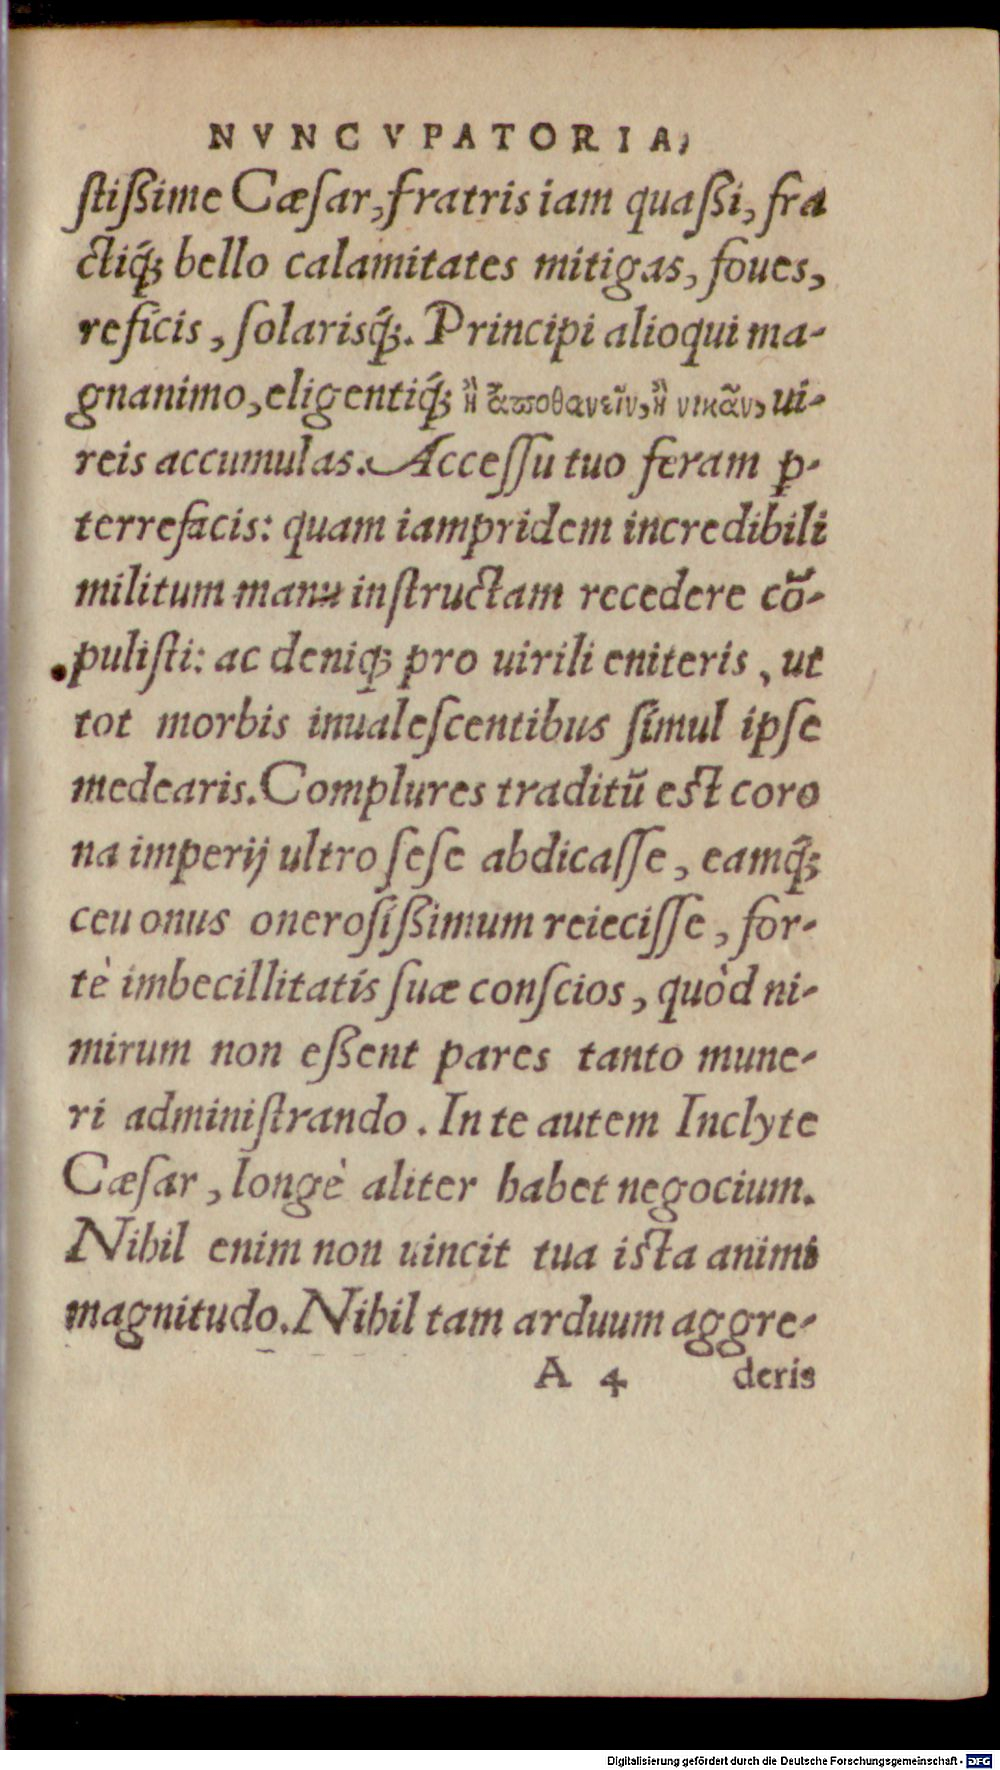 NVNCVPATORIA,
ſtiſsime Cæſar, fratris iam quaſsi, fra
ctiq́; bello calamitates mitigas, foues,
reficis, ſolarisq́;. Principi alioqui ma-
gnanimo, eligentiq́; ἢ ἀποθανεῖν, ἢ νικᾶν, ui-
reis accumulas. Acceſſu tuo feram ꝑ-
terrefacis: quam iampridem incredibili
militum manu inſtructam recedere cõ-
puliſti: ac deniq; pro uirili eniteris, ut
tot morbis inualeſcentibus ſimul ipſe
medearis. Complures traditũ est coro
na imperij ultro ſeſe abdicaſſe, eamq́;
ceu onus oneroſiſsimum reieciſſe, for-
tè imbecillitatis ſuæ conſcios, quòd ni-
mirum non eſsent pares tanto mune-
ri adminiſtrando. In te autem Inclyte
Cæſar, longè aliter habet negocium.
Nihil enim non uincit tua ista animi
magnitudo. Nihil tam arduum aggre-
A 4 deris
Digitalisierung gefördert durch die Deutsche Forschungsgemeinschaft - DFG